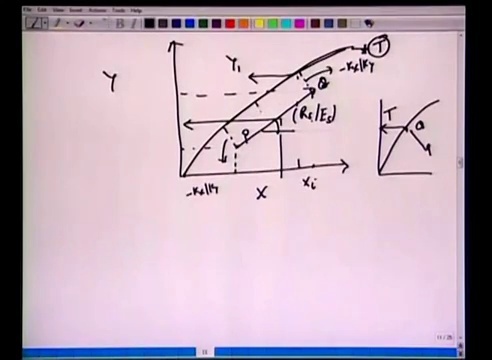 File Edit View Insert Actions Tools Help
Y
Y₁
T
-Kx/Ky
Q
(Rs/Es)
P
-Kx/Ky
X
Xi
T
Q
P